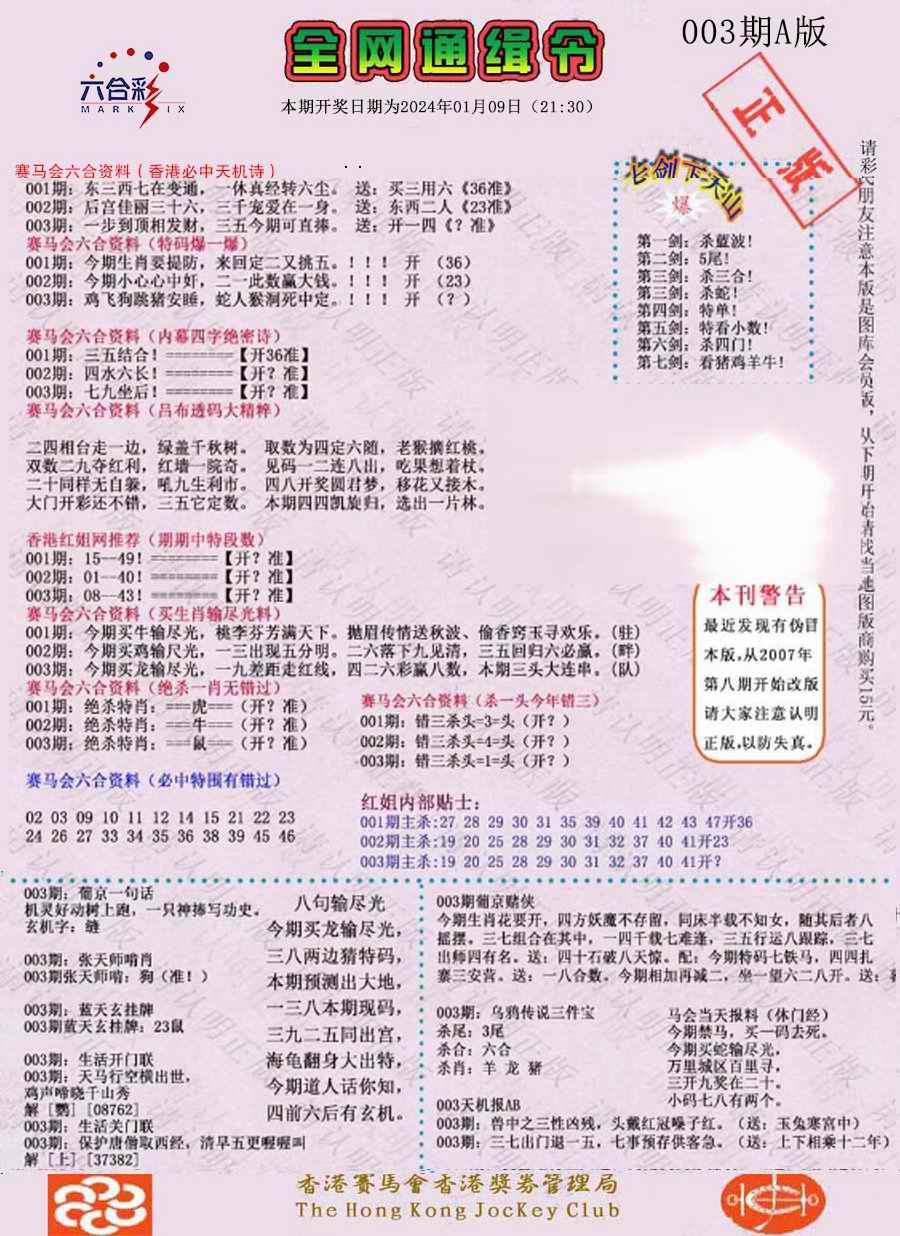 003期A版
全网通缉令
六合彩
MARK SIX
本期开奖日期为2024年01月09日（21:30）
正版
赛马会六合资料（香港必中天机诗）
001期: 东三西七在变通，一休真经转六尘。 送: 买三用六《36准》
002期: 后宫佳丽三十六，三千宠爱在一身。 送: 东西二人《23准》
003期: 一步到顶相发财，三五今期可直捧。 送: 开一四《？准》
赛马会六合资料（特码爆一爆）
001期: 今期生肖要提防，来回定二又挑五。！！！ 开 （36）
002期: 今期小心心中奸，二一此数赢大钱。！！！ 开 （23）
003期: 鸡飞狗跳猪安睡，蛇人猴洞死中定。！！！ 开 （？）
七剑下天山
爆
第一剑: 杀蓝波!
第二剑: 5尾!
第三剑: 杀三合!
第三剑: 杀蛇!
第四剑: 特单!
第五剑: 特看小数!
第六剑: 杀四门!
第七剑: 看猪鸡羊牛!
请彩民朋友注意本版是图库会员版，从下期开始请找当地图版商购买15元。
赛马会六合资料（内幕四字绝密诗）
001期: 三五结合! ========【开36准】
002期: 四水六长! ========【开？准】
003期: 七九坐后! ========【开？准】
赛马会六合资料（吕布透码大精粹）
二四相台走一边，绿盖千秋树。 取数为四定六随，老猴摘红桃。
双数二九夺红利，红墙一院奇。 见码一二连八出，吃果想着杖。
二十同样无自躲，吼九生利市。 四八开奖圆君梦，移花又接木。
大门开彩还不错，三五它定数。 本期四四凯旋归，选出一片林。
香港红姐网推荐（期期中特段数）
001期: 15--49! ========【开？准】
002期: 01--40! ========【开？准】
003期: 08--43! ========【开？准】
赛马会六合资料（买生肖输尽光料）
001期: 今期买牛输尽光，桃李芬芳满天下。抛眉传情送秋波、偷香窍玉寻欢乐。(驻)
002期: 今期买鸡输尺光，一三出现五分明。二六落下九见清，三五回归六必赢。(畔)
003期: 今期买龙输尽光，一九差距走红线，四二六彩赢八数，本期三头大连串。(队)
赛马会六合资料（绝杀一肖无错过）
001期: 绝杀特肖: ===虎===（开？准）
002期: 绝杀特肖: ===牛===（开？准）
003期: 绝杀特肖: ===鼠===（开？准）
赛马会六合资料（杀一头今年错三）
001期: 错三杀头=3=头（开？）
002期: 错三杀头=4=头（开？）
003期: 错三杀头=1=头（开？）
本刊警告
最近发现有伪冒
本版,从2007年
第八期开始改版
请大家注意认明
正版,以防失真。
赛马会六合资料（必中特围有错过）
02 03 09 10 11 12 14 15 21 22 23
24 26 27 33 34 35 36 38 39 45 46
红姐内部贴士:
001期主杀:27 28 29 30 31 35 39 40 41 42 43 47开36
002期主杀:19 20 25 28 29 30 31 32 37 40 41开23
003期主杀:19 20 25 28 29 30 31 32 37 40 41开?
003期: 葡京一句话
机灵好动树上跑，一只神捧写功史。
玄机字: 缝
003期: 张天师哨肖
003期张天师啃: 狗（准!）
003期: 蓝天玄挂牌
003期蓝天玄挂牌: 23鼠
003期: 生活开门联
003期: 天马行空横出世，
鸡声啼晓千山秀
解 [鹦] [08762]
003期: 生活关门联
003期: 保护唐僧取西经，清早五更喔喔叫
解 [上] [37382]
八句输尽光
今期买龙输尽光，
三八两边猜特码，
本期预测出大地，
一三八本期现码，
三九二五同出宫，
海龟翻身大出特，
今期道人话你知，
四前六后有玄机。
003期葡京赌侠
今期生肖花要开，四方妖魔不存留，同床半载不知女，随其后者八
摇摆。三七组合在其中，一四千载七难逢，三五行运八跟踪，三七
出师四有名。送: 四十石破八天惊。配: 今期特码七铁马，四四扎
寨三安营。送: 一八合数。今期相加再减二，坐一望六二八开。送:
003期: 乌鸦传说三件宝
杀尾: 3尾
杀合: 六合
杀肖: 羊 龙 猪
马会当天报料（休门经）
今期禁马，买一码去死。
今期买蛇输尽光，
万里城区百里寻，
三开九奖在二十。
小码七八有两个。
003天机报AB
003期: 兽中之三性凶残，头戴红冠嗓子红。（送: 玉兔寒宫中）
003期: 三七出门退一五，七事预存供客急。（送: 上下相乘十二年）
香港赛馬會香港獎券管理局
The Hong Kong JocKey Club